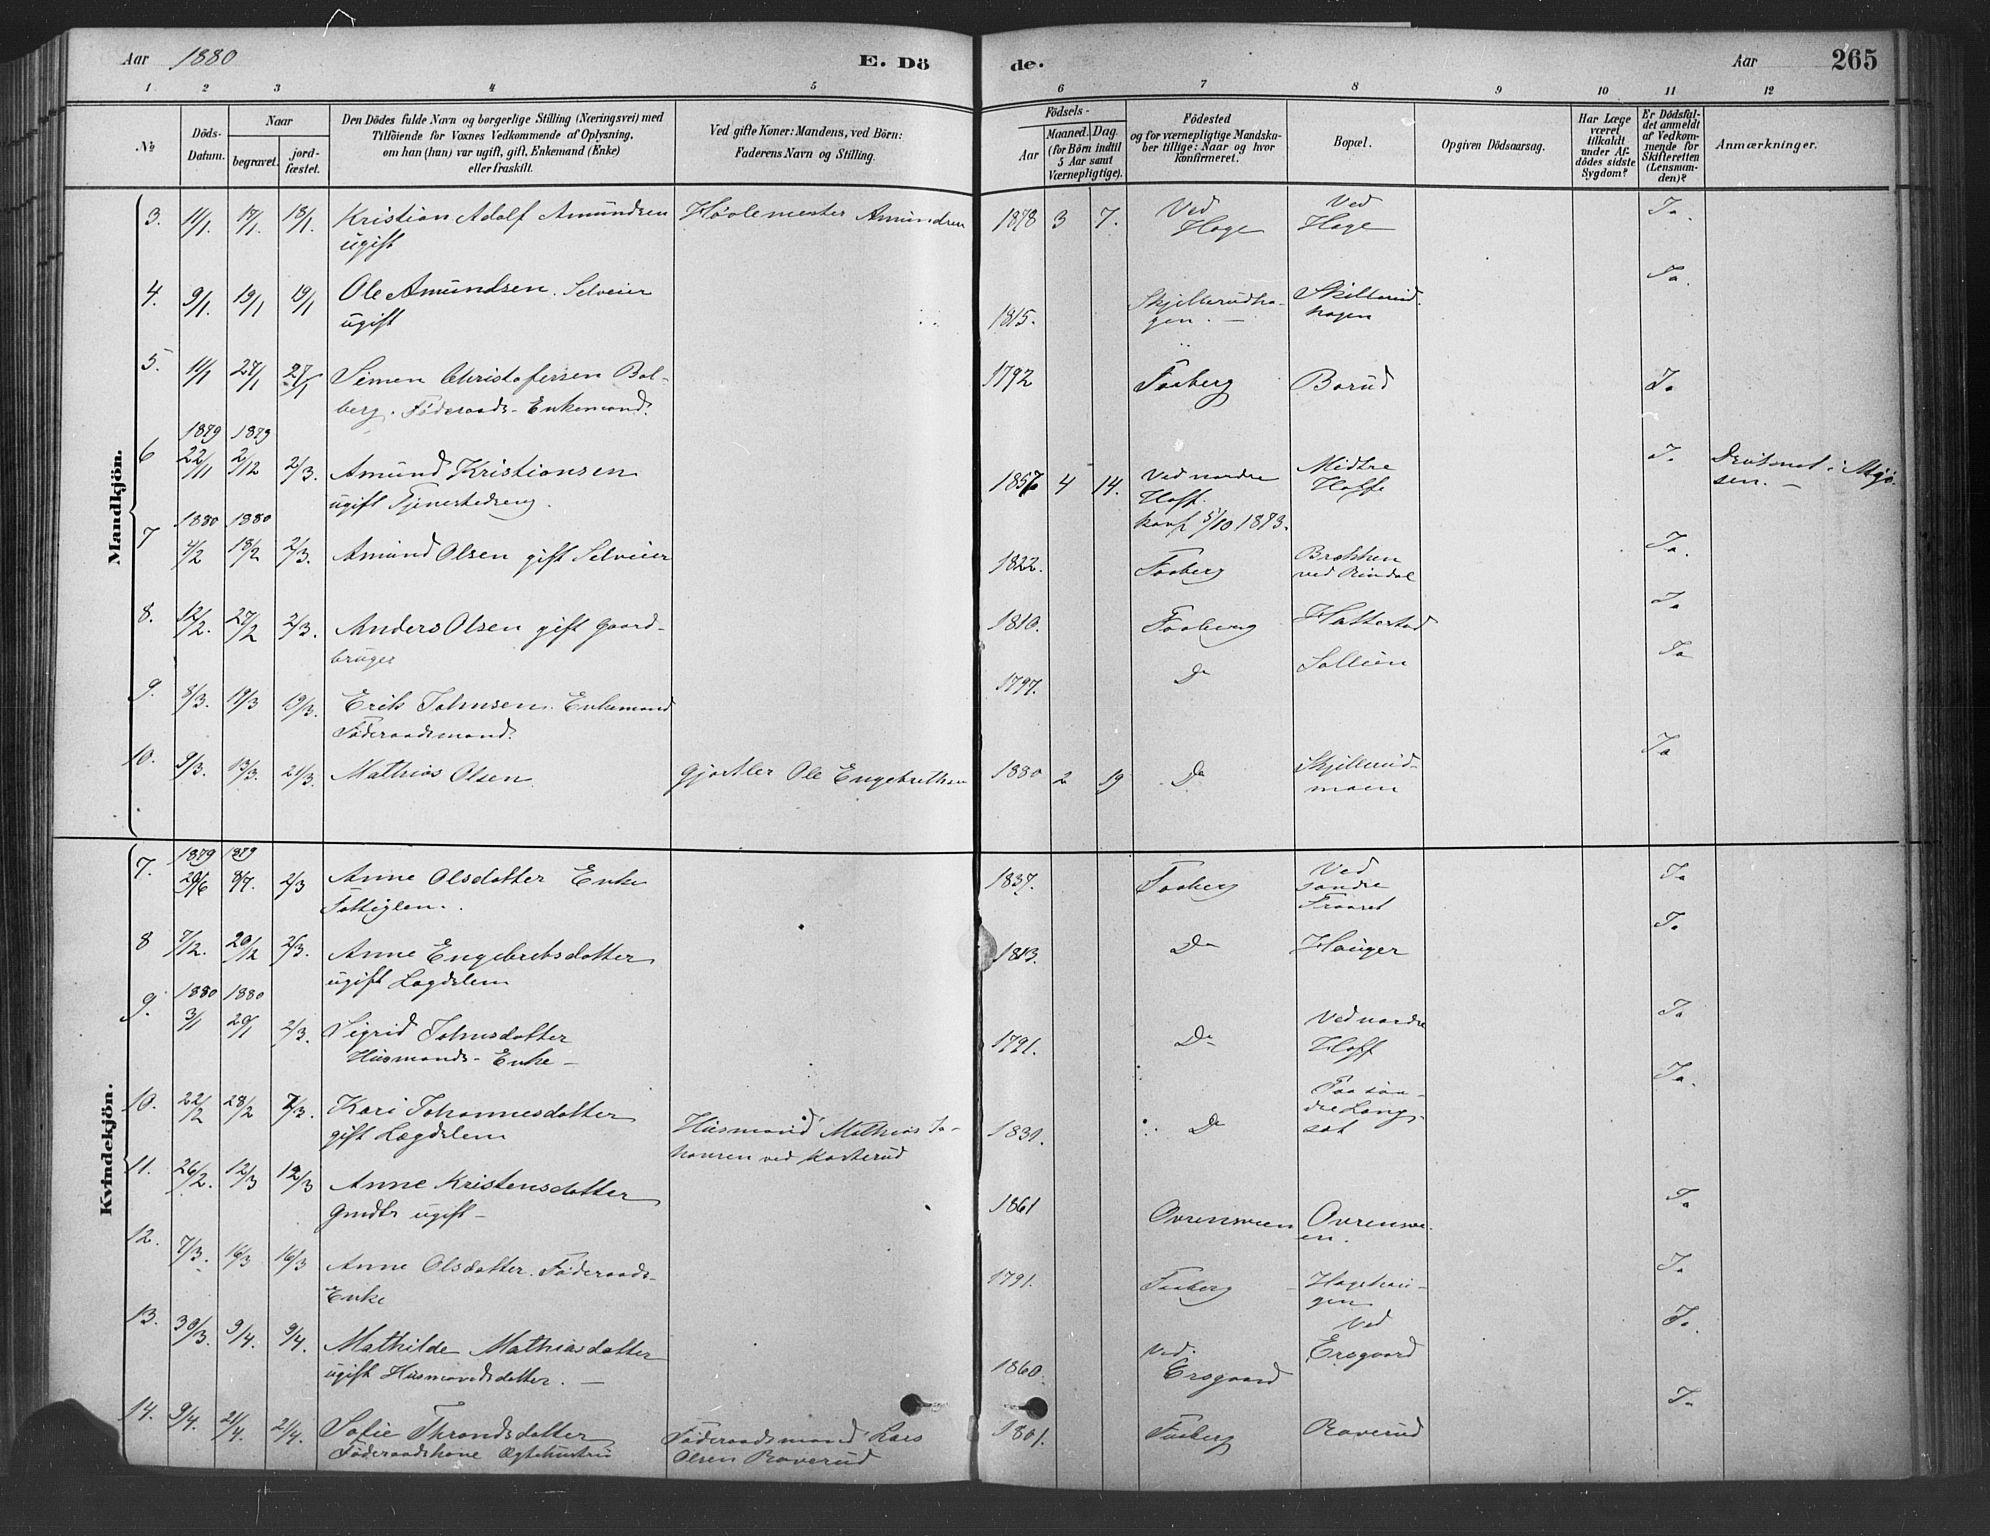 Aar 1880 E. Dö de. Aar 265
1 2 3 4 5 6 7 8 9 10 11 12
No
Döds-
Datum.
Naar
begravet.
jord-
fæstet.
Den Dödes fulde Navn og borgerlige Stilling (Næringsvei) med
Tilföiende for Voxnes Vedkommende af Oplysning,
om han (hun) var ugift, gift, Enkemand (Enke)
eller fraskilt.
Ved gifte Koner: Mandens, ved Börn:
Faderens Navn og Stilling.
Födsels-
Aar
Maaned. Dag.
(for Börn indtil
5 Aar samt
Værnepligtige).
Födested
og for værnepligtige Mandska-
ber tillige: Naar og hvor
konfirmeret.
Bopæl.
Opgiven Dödsaarsag.
Har Læge
været
tilkaldt
under Af-
dödes sidste
Sygdom?
Er Dödsfal-
det anmeldt
af Vedkom-
mende for
Skifteretten
(Lensman-
den)?
Anmærkninger.
Mandkjön.
3. 11/1. 18/1. 18/1. Kristian Adolf Amundsen Amundsen 1878 3 7. Ved Ved Ja.
ugift Hage Hage
4. 9/1. 19/1 19/1 Ole Amundsen. Selveier 1815. Skjellerudha- Ja.
ugift gen. hagen
5. 11/1 27/1 27/1 Simen Christofersen Bal- 1792 Faaberg Borud Ja
berg. Föderaads-Enkemand.
1879 1879
6 22/11 2/12 2/3. Amund Kristiansen 1857 4 14. Ved nordre Midtre Ja i Mjö-
ugift Hoff. Hoffe sen.
konf 5/10 1873.
1880 1880
7 4/2 18/2 2/3. Amund Olsen gift Selveier 1822. Faaberg Ja.
ved Rindal
8. 12/2. 27/2 2/3. Anders Olsen gift Gaard- 1810. Faaberg Hattestad Ja
bruger
9. 8/3. 19/3 19/3. Erik Johnsen. Enkemand 1797. Do Ja
Föderaadsmand.
10. 9/3. 13/3. 21/3. Mathias Olsen. Ole Engebrethsen 1880 2 19 Do Skjellerud- Ja
moen
Kvindekjön.
1879 1879
7. 29/6 8/7. 2/3 Anne Olsdatter Enke 1837. Faaberg Ved Ja
Fattiglem. söndre
8 7/12. 20/12 2/3. Anne Engebretsdatter 1813. Do Hauger Ja
ugift Lægdslem
1880 1880
9. 3/1 20/1 2/3. Sigrid Johnsdatter 1791. Do Ved nordre Ja
Husmands-Enke- Hoff
10. 22/2 28/2 7/3. Kari Johannesdatter Husmand Mathias Jo- 1831. Do Paa sön- Ja.
gift Lægdslem hansen ved dre Lang-
sæt
11. 26/2. 12/3 12/3 Anne Kristensdatter 1861 Ovrensveen Ovrensve- Ja
ugift- en.
12. 7/3. 16/3 16/3 Anne Olsdatter. Föderaads- 1791. Faaberg Hagehau- Ja
Enke gen
13. 30/3. 9/4. 9/4. Mathilde Mathiasdatter 1860. Ved Ved Ja.
ugift Husmandsdatter. Ersgaard Ersgaard
14. 9/4. 21/4. 21/4. Sofie Throndsdatter Föderaadsmand Lars 1801. Faaberg Roverud Ja
Föderaadskone Ægtehustru Olsen Roverud